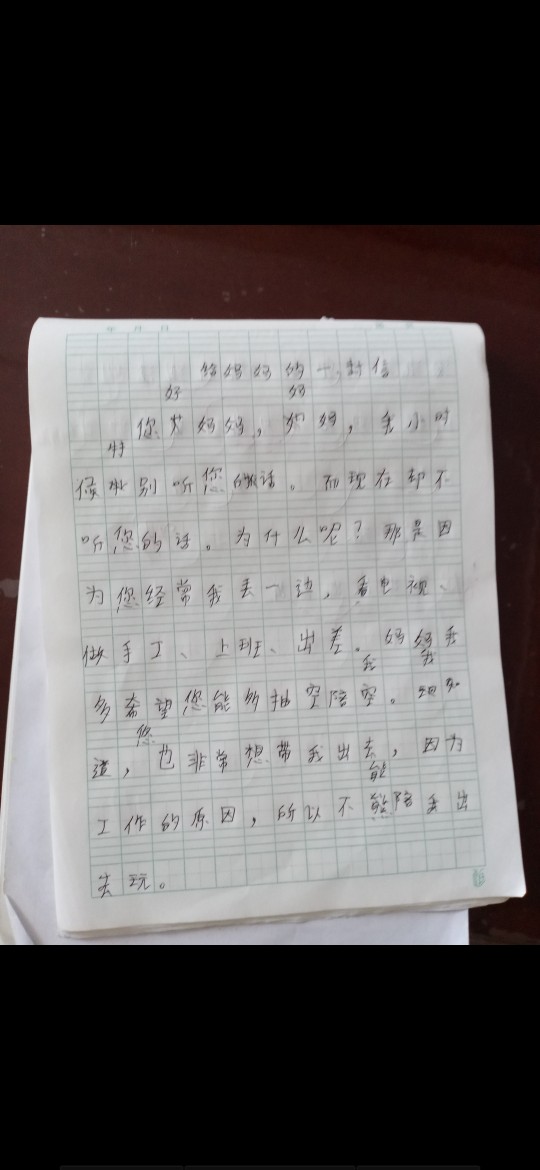 给妈妈的一封信
好 妈
你 妈妈，妈，我小时
特
候 别听您的话。而现在却不
听您的话。为什么呢？那是因
为您经常我丢一边，看电视、
做手工、上班、出差。妈妈我
我 我
多希望您能多抽空陪 。 知
您
道，也非常想带我出去，因为
能
工作的原因，所以不能陪我出
去玩。